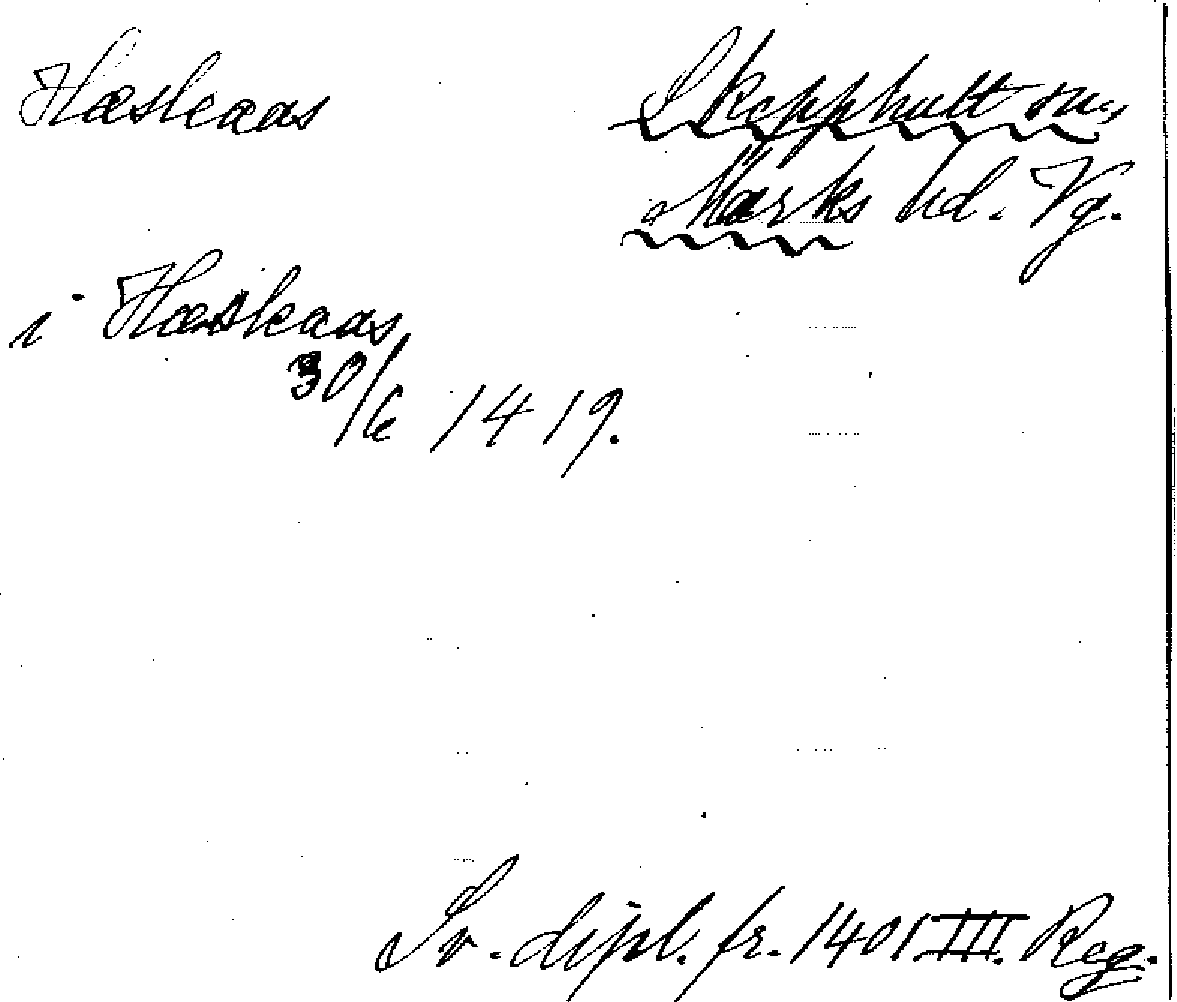 Hæslaas
Skepphult sn,
Marks hd. Vg.
i Hæslaas
30/6 1419.
Sv. dipl. fr. 1401 III. Reg.